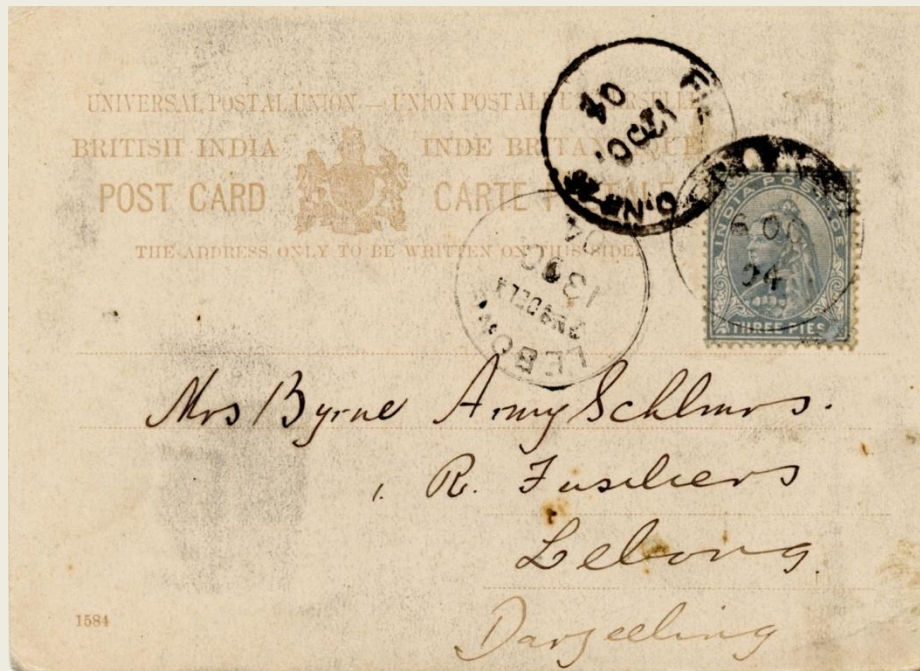 UNIVERSAL POSTAL UNION — UNION POSTALE UNIVERSELLE
BRITISH INDIA INDE BRITANNIQUE
POST CARD CARTE POSTALE
THE ADDRESS ONLY TO BE WRITTEN ON THIS SIDE.
04
13OC.
F.P.O. No
INDIA POSTAGE
6 OC
04
THREE PIES
13 OC
LEBONG
Mrs Byrne Army Schlmrs.
1. R. Fusiliers
Lebong.
Darjeeling
1584